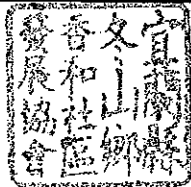 宜蘭縣
冬山鄉
香和社區
發展協會